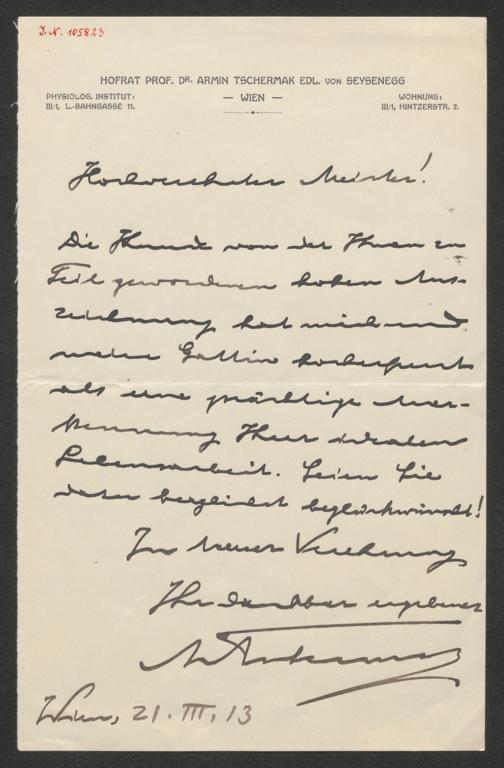 J. N. 105823
HOFRAT PROF. DR. ARMIN TSCHERMAK EDL. VON SEYSENEGG
PHYSIOLOG. INSTITUT:
III/1, L.-BAHNGASSE 11.
— WIEN —
WOHNUNG:
III/1, HINTZERSTR. 2.
Hochverehrter Meister!
Die Kunde von der Ihnen zu
Teil gewordenen hohen Aus-
zeichnung hat mich und
meine Gattin hocherfreut
als eine prächtige Aner-
kennung Ihrer idealen
Lebensarbeit. Seien Sie
daher herzlichst beglückwünscht!
In treuer Verehrung
Ihr dankbar ergebener
A Tschermak
Wien, 21. III. 13